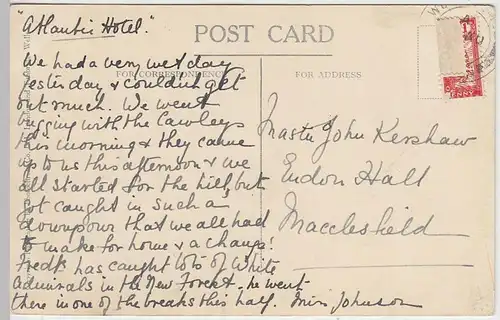 "Atlantic Hotel".
POST CARD
FOR CORRESPONDENCE
FOR ADDRESS
We had a very wet day
yesterday & couldn't get
out much. We went
bugging with the Cawleys
this morning & they came
up to us this afternoon & we
all started for the hill, but
got caught in such a
downpour that we all had
to make for home & a change!
Fredk has caught lots of White
Admirals in the New Forest, he went
there in one of the breaks this half. Miss Johnson
Master John Kershaw
Endon Hall
Macclesfield